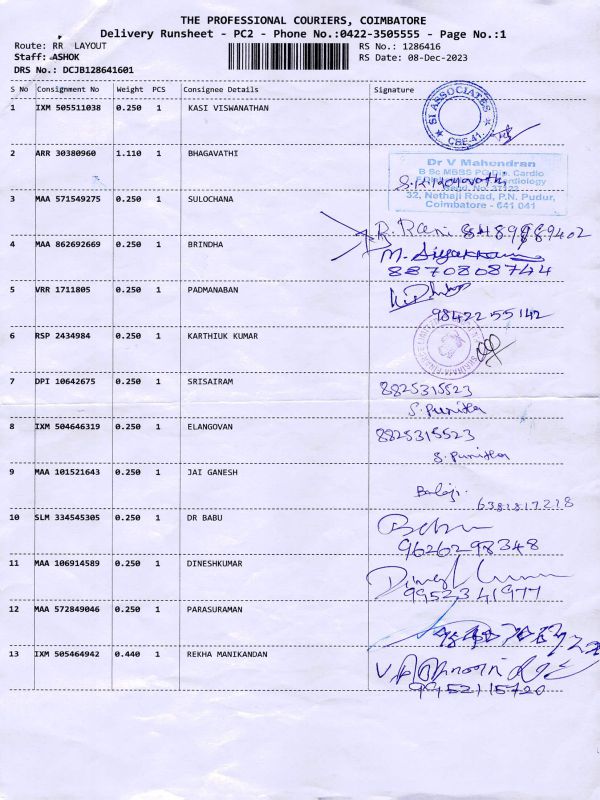 THE PROFESSIONAL COURIERS, COIMBATORE
Delivery Runsheet - PC2 - Phone No.:0422-3505555 - Page No.:1
Route: RR LAYOUT RS No.: 1286416
Staff: ASHOK RS Date: 08-Dec-2023
DRS No.: DCJB128641601
S No Consignment No Weight PCS Consignee Details Signature
1 IXM 505511038 0.250 1 KASI VISWANATHAN
SI ASSOCIATES
CBE-41.
2 ARR 30380960 1.110 1 BHAGAVATHI
Dr V Mahendran
B Sc MBBS PG Dip. Cardio
32, Nethaji Road, P.N. Pudur,
Coimbatore - 641 041
3 MAA 571549275 0.250 1 SULOCHANA
R. Rani 8489989402
4 MAA 862692669 0.250 1 BRINDHA
M.
8870808744
5 VRR 1711805 0.250 1 PADMANABAN
98422 55142
6 RSP 2434984 0.250 1 KARTHIUK KUMAR
7 DPI 10642675 0.250 1 SRISAIRAM
8825315523
S. Punitha
8 IXM 504646319 0.250 1 ELANGOVAN
8825315523
S. Punitha
9 MAA 101521643 0.250 1 JAI GANESH
Balaji.
6381817228
10 SLM 334545305 0.250 1 DR BABU
9626298348
11 MAA 106914589 0.250 1 DINESHKUMAR
Dinesh Kumar
9952341977
12 MAA 572849046 0.250 1 PARASURAMAN
13 IXM 505464942 0.440 1 REKHA MANIKANDAN
9952115720